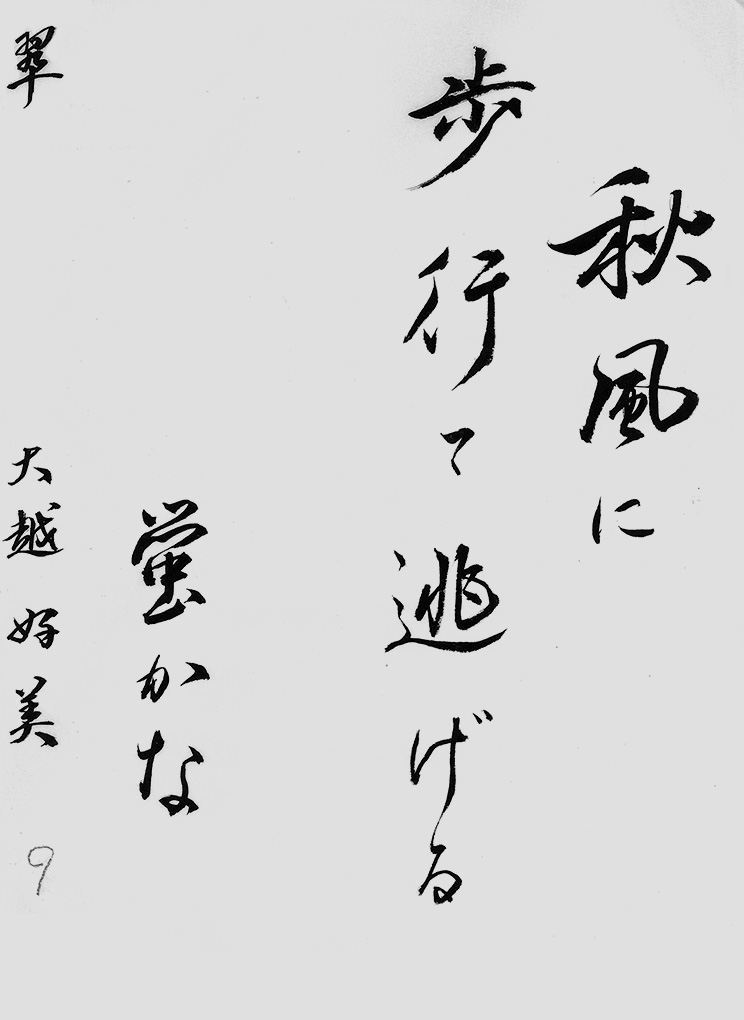 秋風に
歩行て逃げる
蛍かな
翠
大越 好美
9